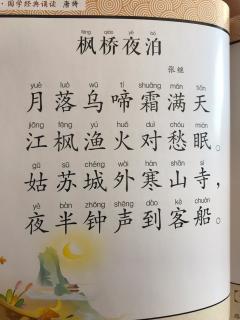 ·国学经典诵读 唐诗
fēng qiáo yè bó
枫桥夜泊
张继
yuè luò wū tí shuāng mǎn tiān
月落乌啼霜满天，
jiāng fēng yú huǒ duì chóu mián
江枫渔火对愁眠。
gū sū chéng wài hán shān sì
姑苏城外寒山寺，
yè bàn zhōng shēng dào kè chuán
夜半钟声到客船。